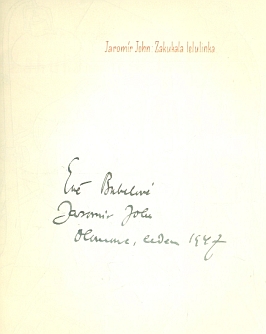 Jaromír John Zakukala lelulinka
Evě Bubelové
Jaromír John
Olomouc, leden 1947